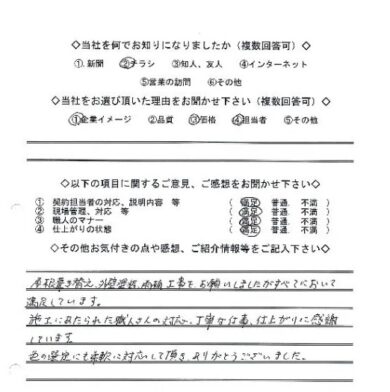 ◇当社を何でお知りになりましたか（複数回答可）◇
①新聞　②チラシ　③知人、友人　④インターネット
⑤営業の訪問　⑥その他
◇当社をお選び頂いた理由をお聞かせ下さい（複数回答可）◇
①企業イメージ　②品質　③価格　④担当者　⑤その他
◇以下の項目に関するご意見、ご感想をお聞かせ下さい◇
①　契約担当者の対応、説明内容　等　（　満足　普通.　不満　）
②　現場管理、対応　等　（　満足　普通.　不満　）
③　職人のマナー　（　満足　普通.　不満　）
④　仕上がりの状態　（　満足　普通.　不満　）
◇その他お気付きの点や感想、ご紹介情報等をご記入下さい◇
屋根葺き替え、外壁塗装、雨樋工事をお願いしましたがすべてにおいて
満足しています。
施工にあたられた職人さんの対応、丁寧な仕事、仕上がりに感謝
しています。
色の選定にも柔軟に対応して頂き、ありがとうございました。